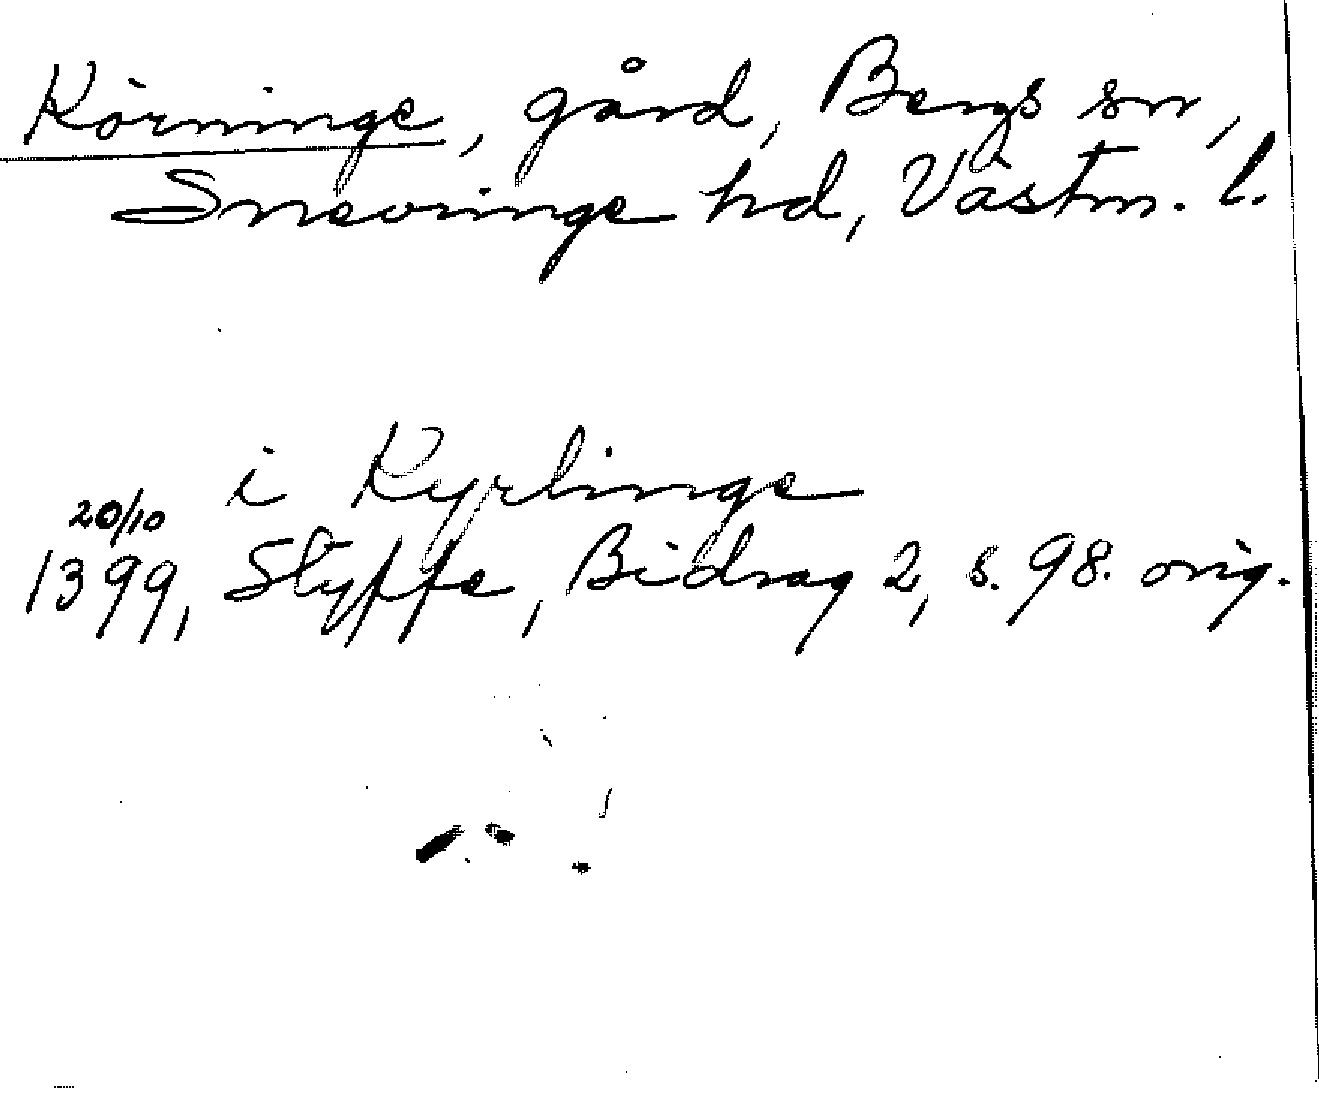 Körninge, gård, Bergs sn,
Snevringe hd, Västm. l.
i Kyrlinge
20/10
1399, Styffe, Bidrag 2, s. 98. orig.